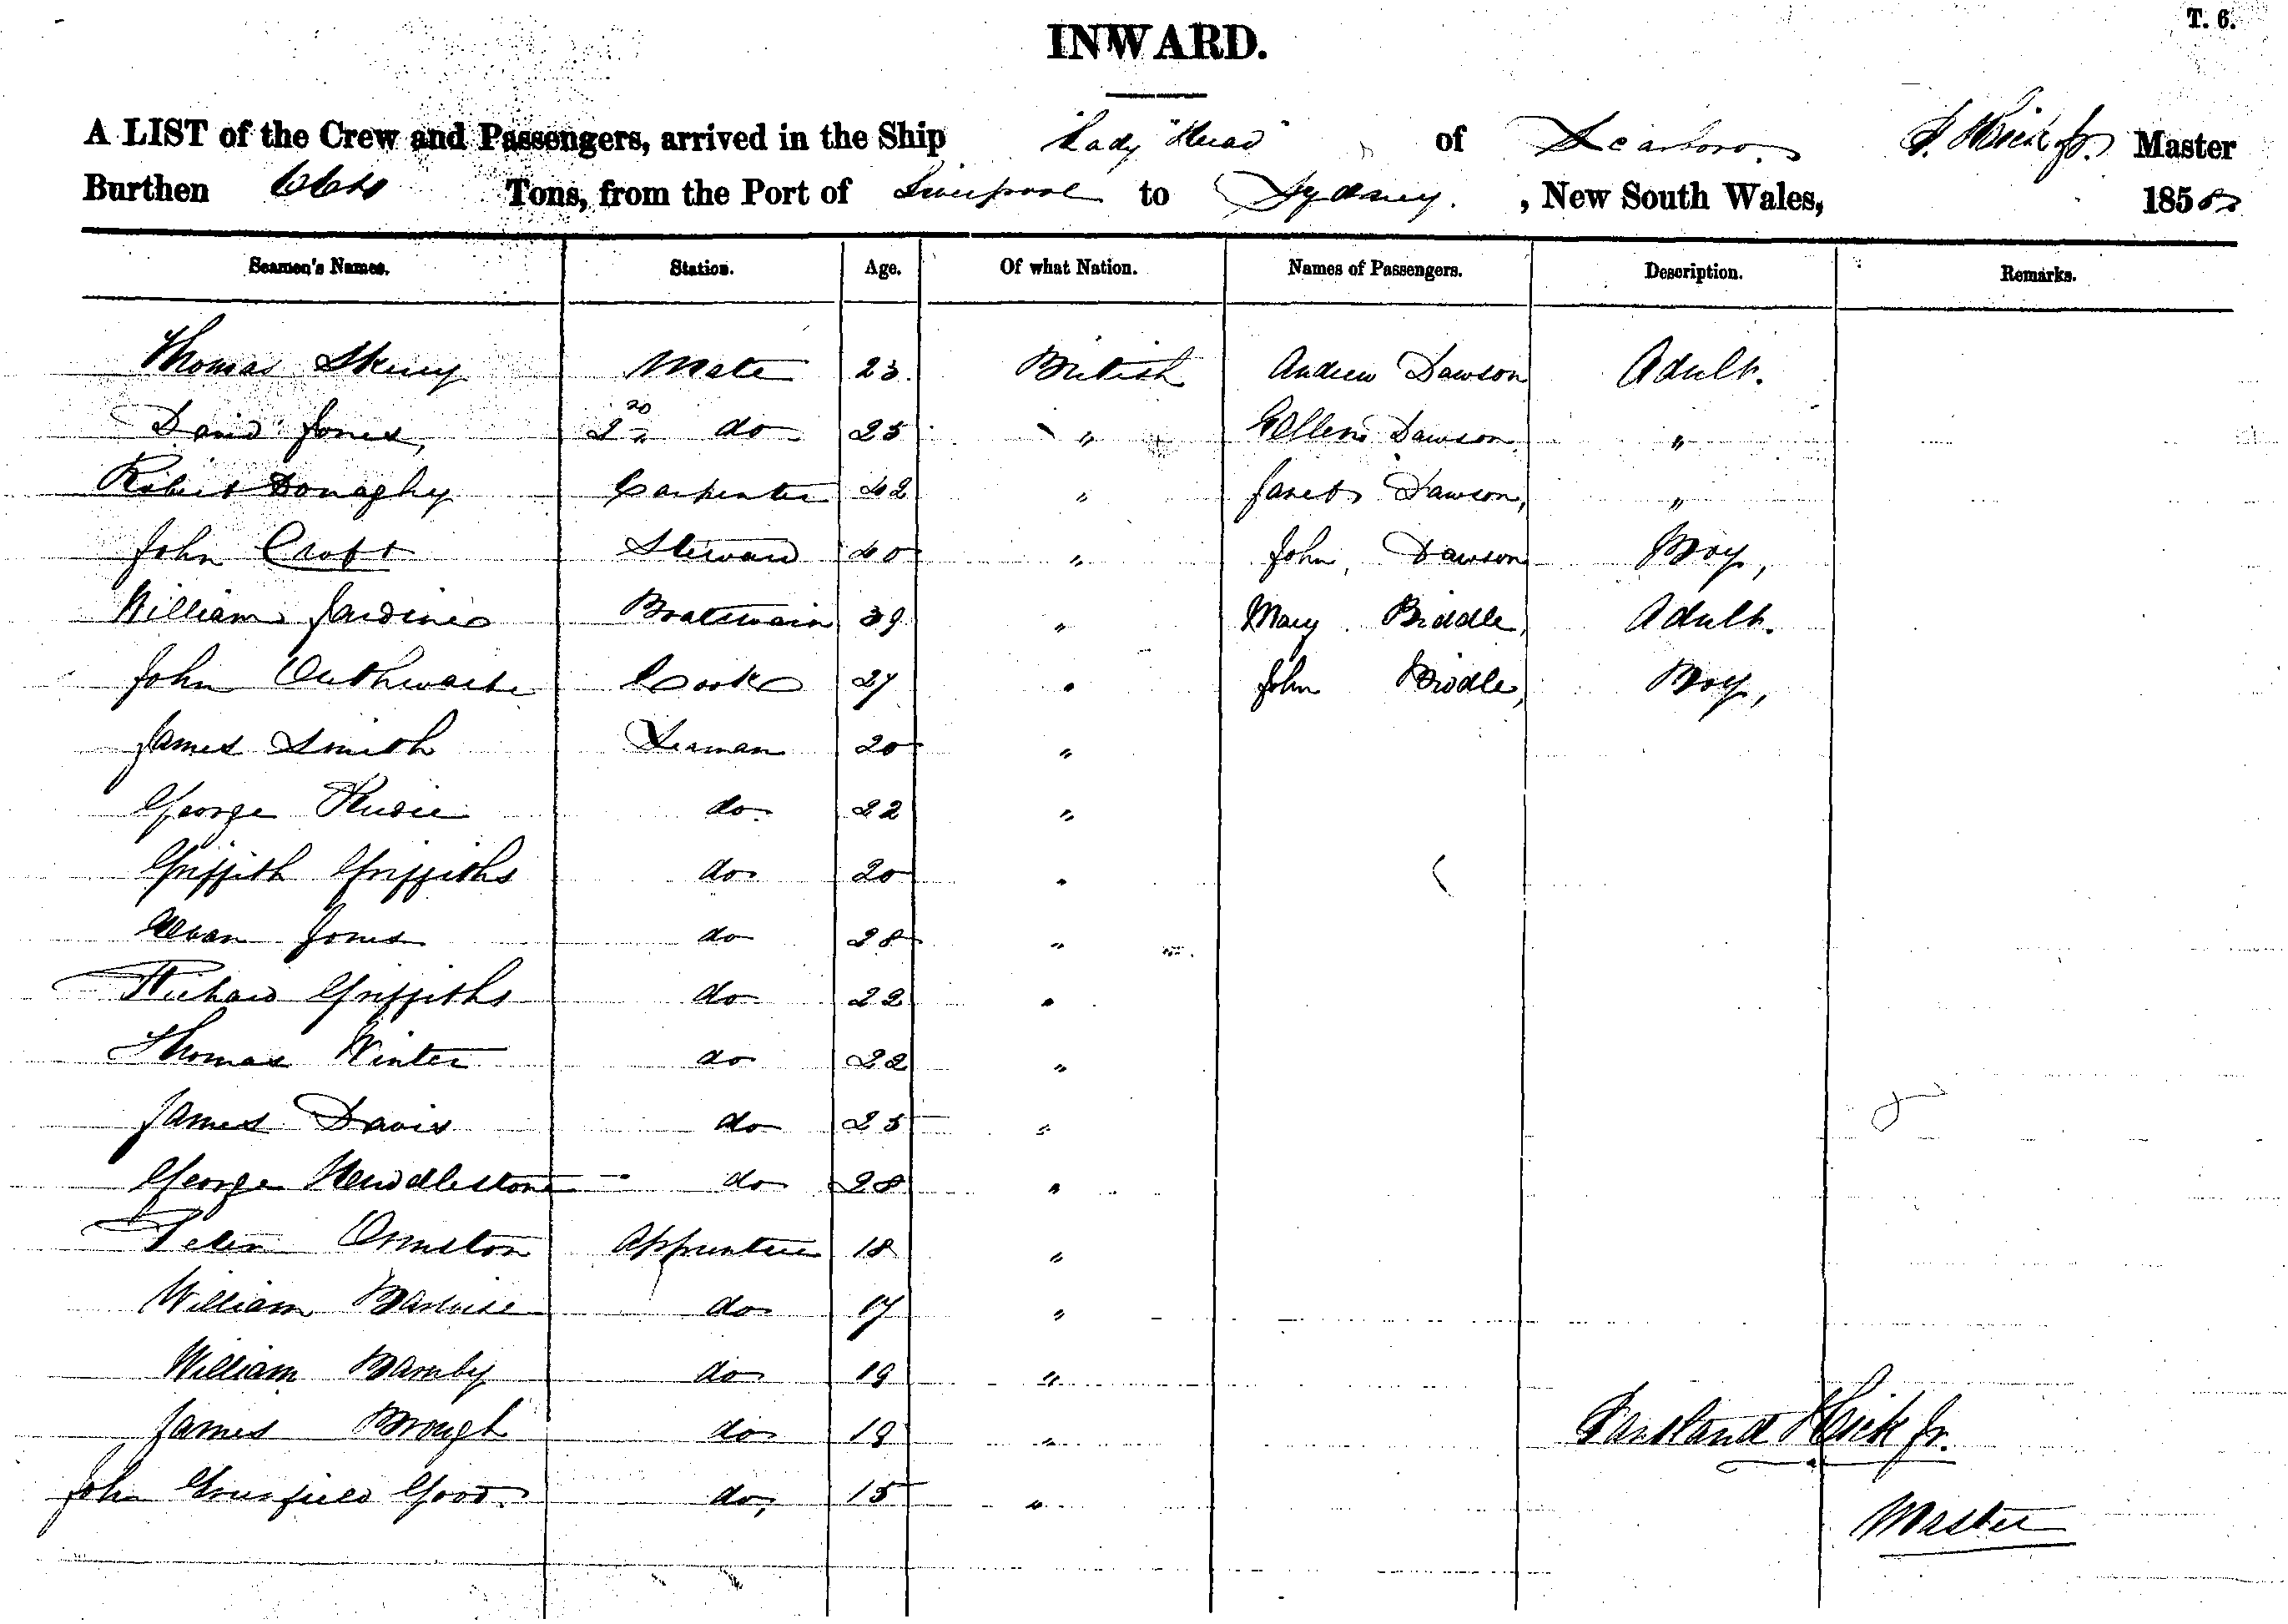 T. 6.
INWARD.
A LIST of the Crew and Passengers, arrived in the Ship "Lady Head" of Scarboro. P. Hick Jr. Master
Burthen Tons, from the Port of Liverpool to Sydney. , New South Wales, 185
Seamen's Names. Station. Age. Of what Nation. Names of Passengers. Description. Remarks.
Thomas Mate 23. British Andrew Dawson Adult.
David Jones, 2nd do 25 " Ellen Dawson "
Robert Donaghy Carpenter 42 " Janet Dawson, "
John Croft Steward 40 " John, Dawson Boy,
William Jardine Boatswain 39 " Mary Biddle, Adult.
John Outhwaite Cook 27 " John Biddle, Boy,
James Smith Seaman 20 "
George do 22 "
Griffith Griffiths do 20 "
Evan Jones do 28 "
Richard Griffiths do 22 "
Thomas Winter do 22 "
James Davis do 25 "
George Huddlestone do 28 "
Peter Ormston Apprentice 18 "
William do 17 "
William Barnby do 19 "
James Brough do 19 "
Pantland Hick Jr.
John Greenfield Good. do, 15 "
Master